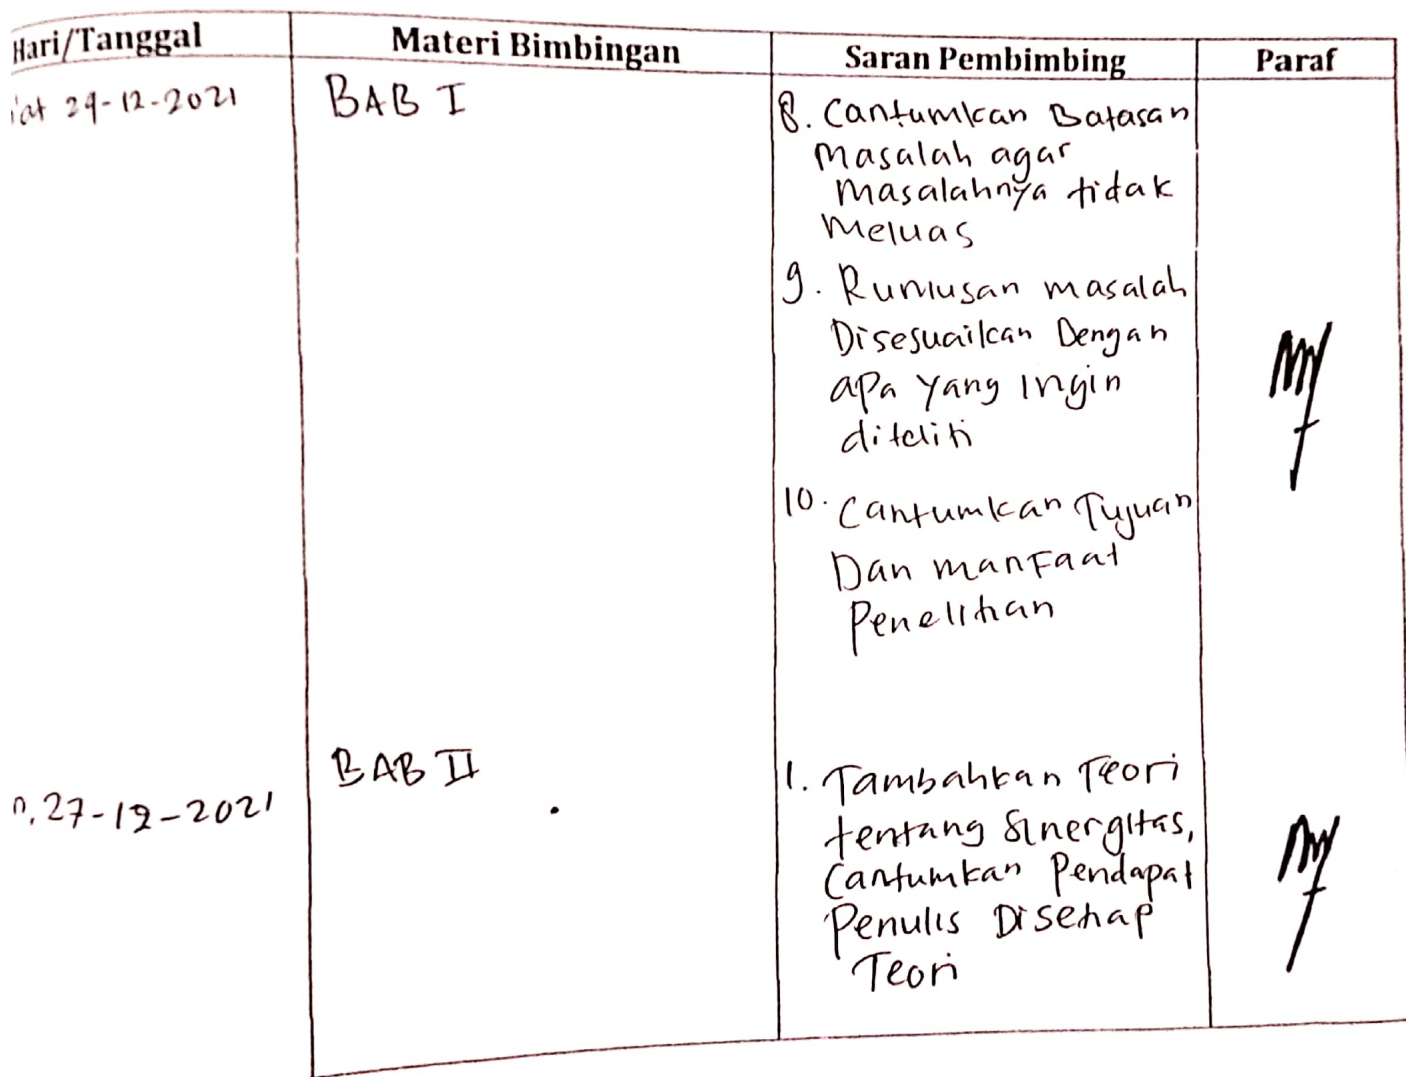 Hari/Tanggal Materi Bimbingan Saran Pembimbing Paraf
'at 24-12-2021 BAB I 8. Cantumkan Batasan
Masalah agar
Masalahnya tidak
Meluas
9. Rumusan masalah
Disesuaikan Dengan
apa yang Ingin
diteliti
10. Cantumkan Tujuan
Dan manfaat
Penelitian
n, 27-12-2021 BAB II 1. Tambahkan Teori
tentang Sinergitas,
Cantumkan Pendapat
Penulis Disetiap
Teori